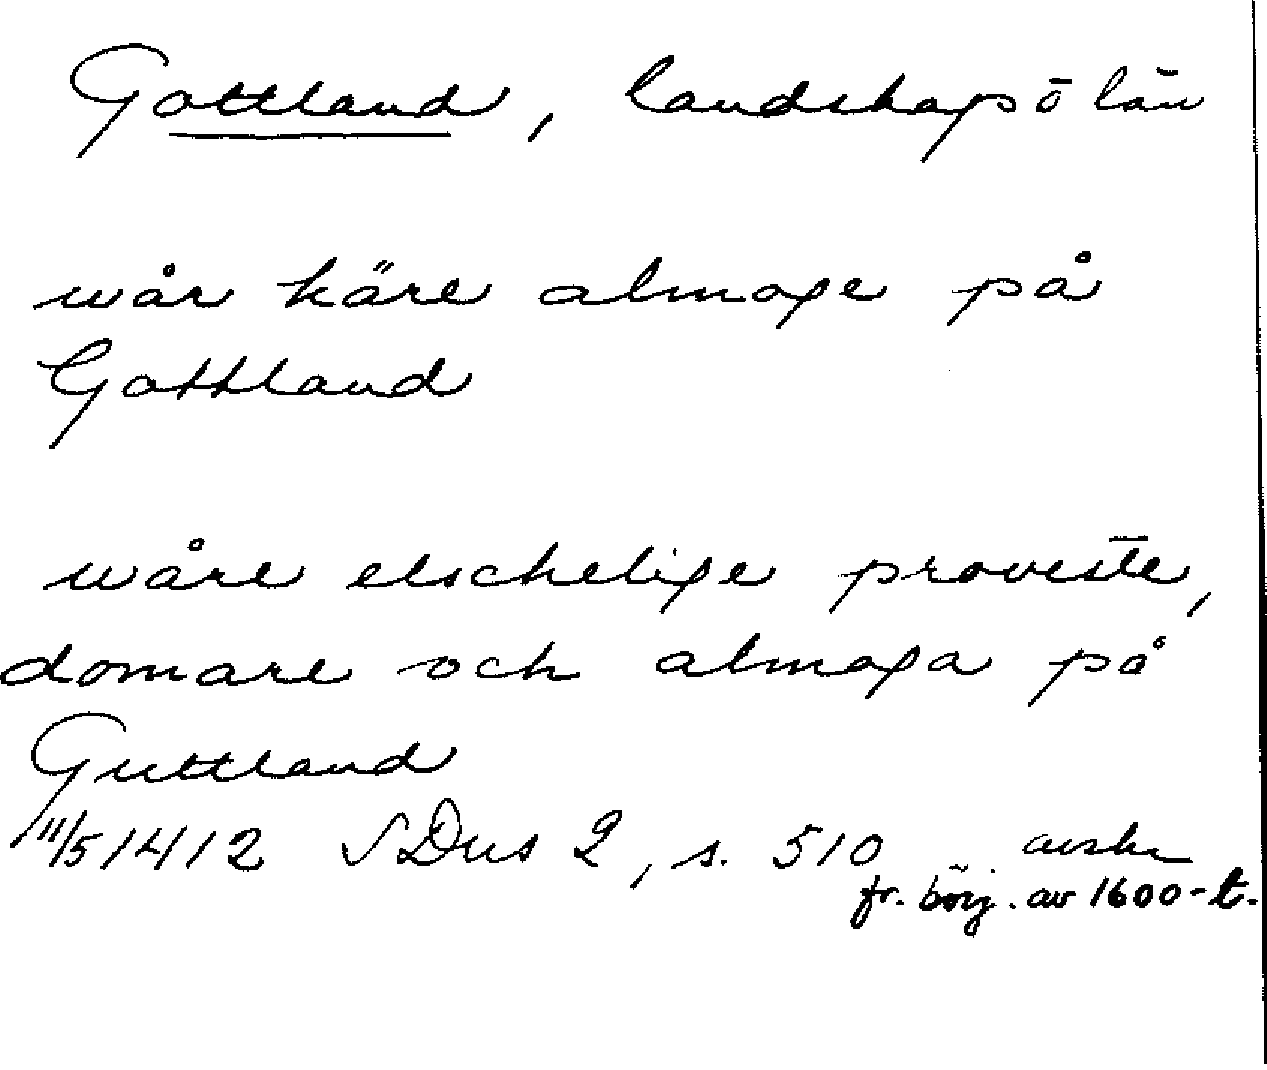 Gottland, landskap ō län
wår käre almoge på
Gottland
wåre elschelige proveste,
domare och almoga på
Guttland
11/5 1412 SDns 2, s. 510 avskr
fr. börj. av 1600-t.